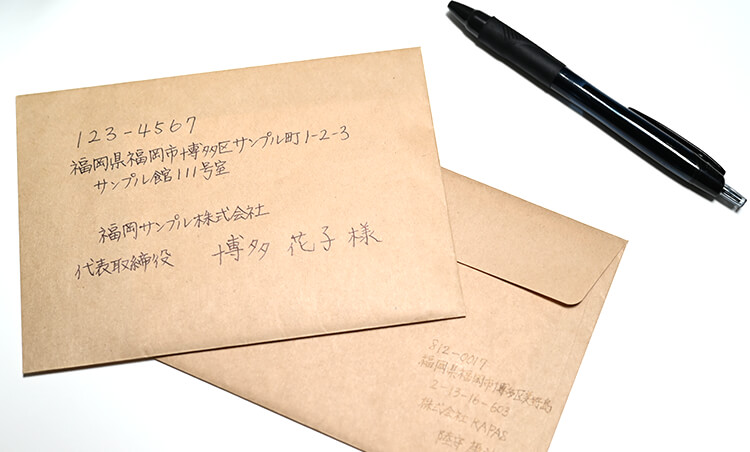 123-4567
福岡県福岡市博多区サンプル町1-2-3
サンプル館111号室
福岡サンプル株式会社
代表取締役 博多 花子 様
812-0017
福岡県福岡市博多区美野島
2-13-16-603
株式会社KAPAS